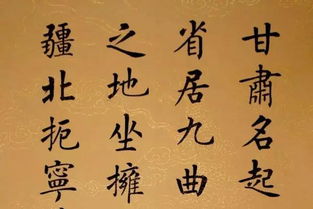 甘肅名起
省居九曲
之地坐擁
疆北扼寧